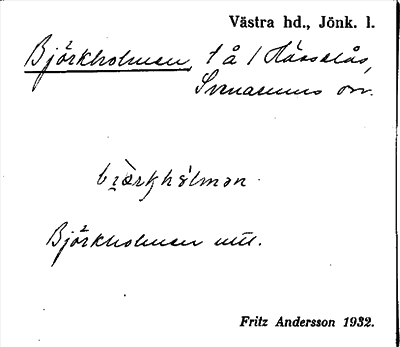 Västra hd., Jönk. l.
Björkholmen, t å 1 Hässelås,
Svenarums sn.
Björkholmen utt.
Fritz Andersson 1932.